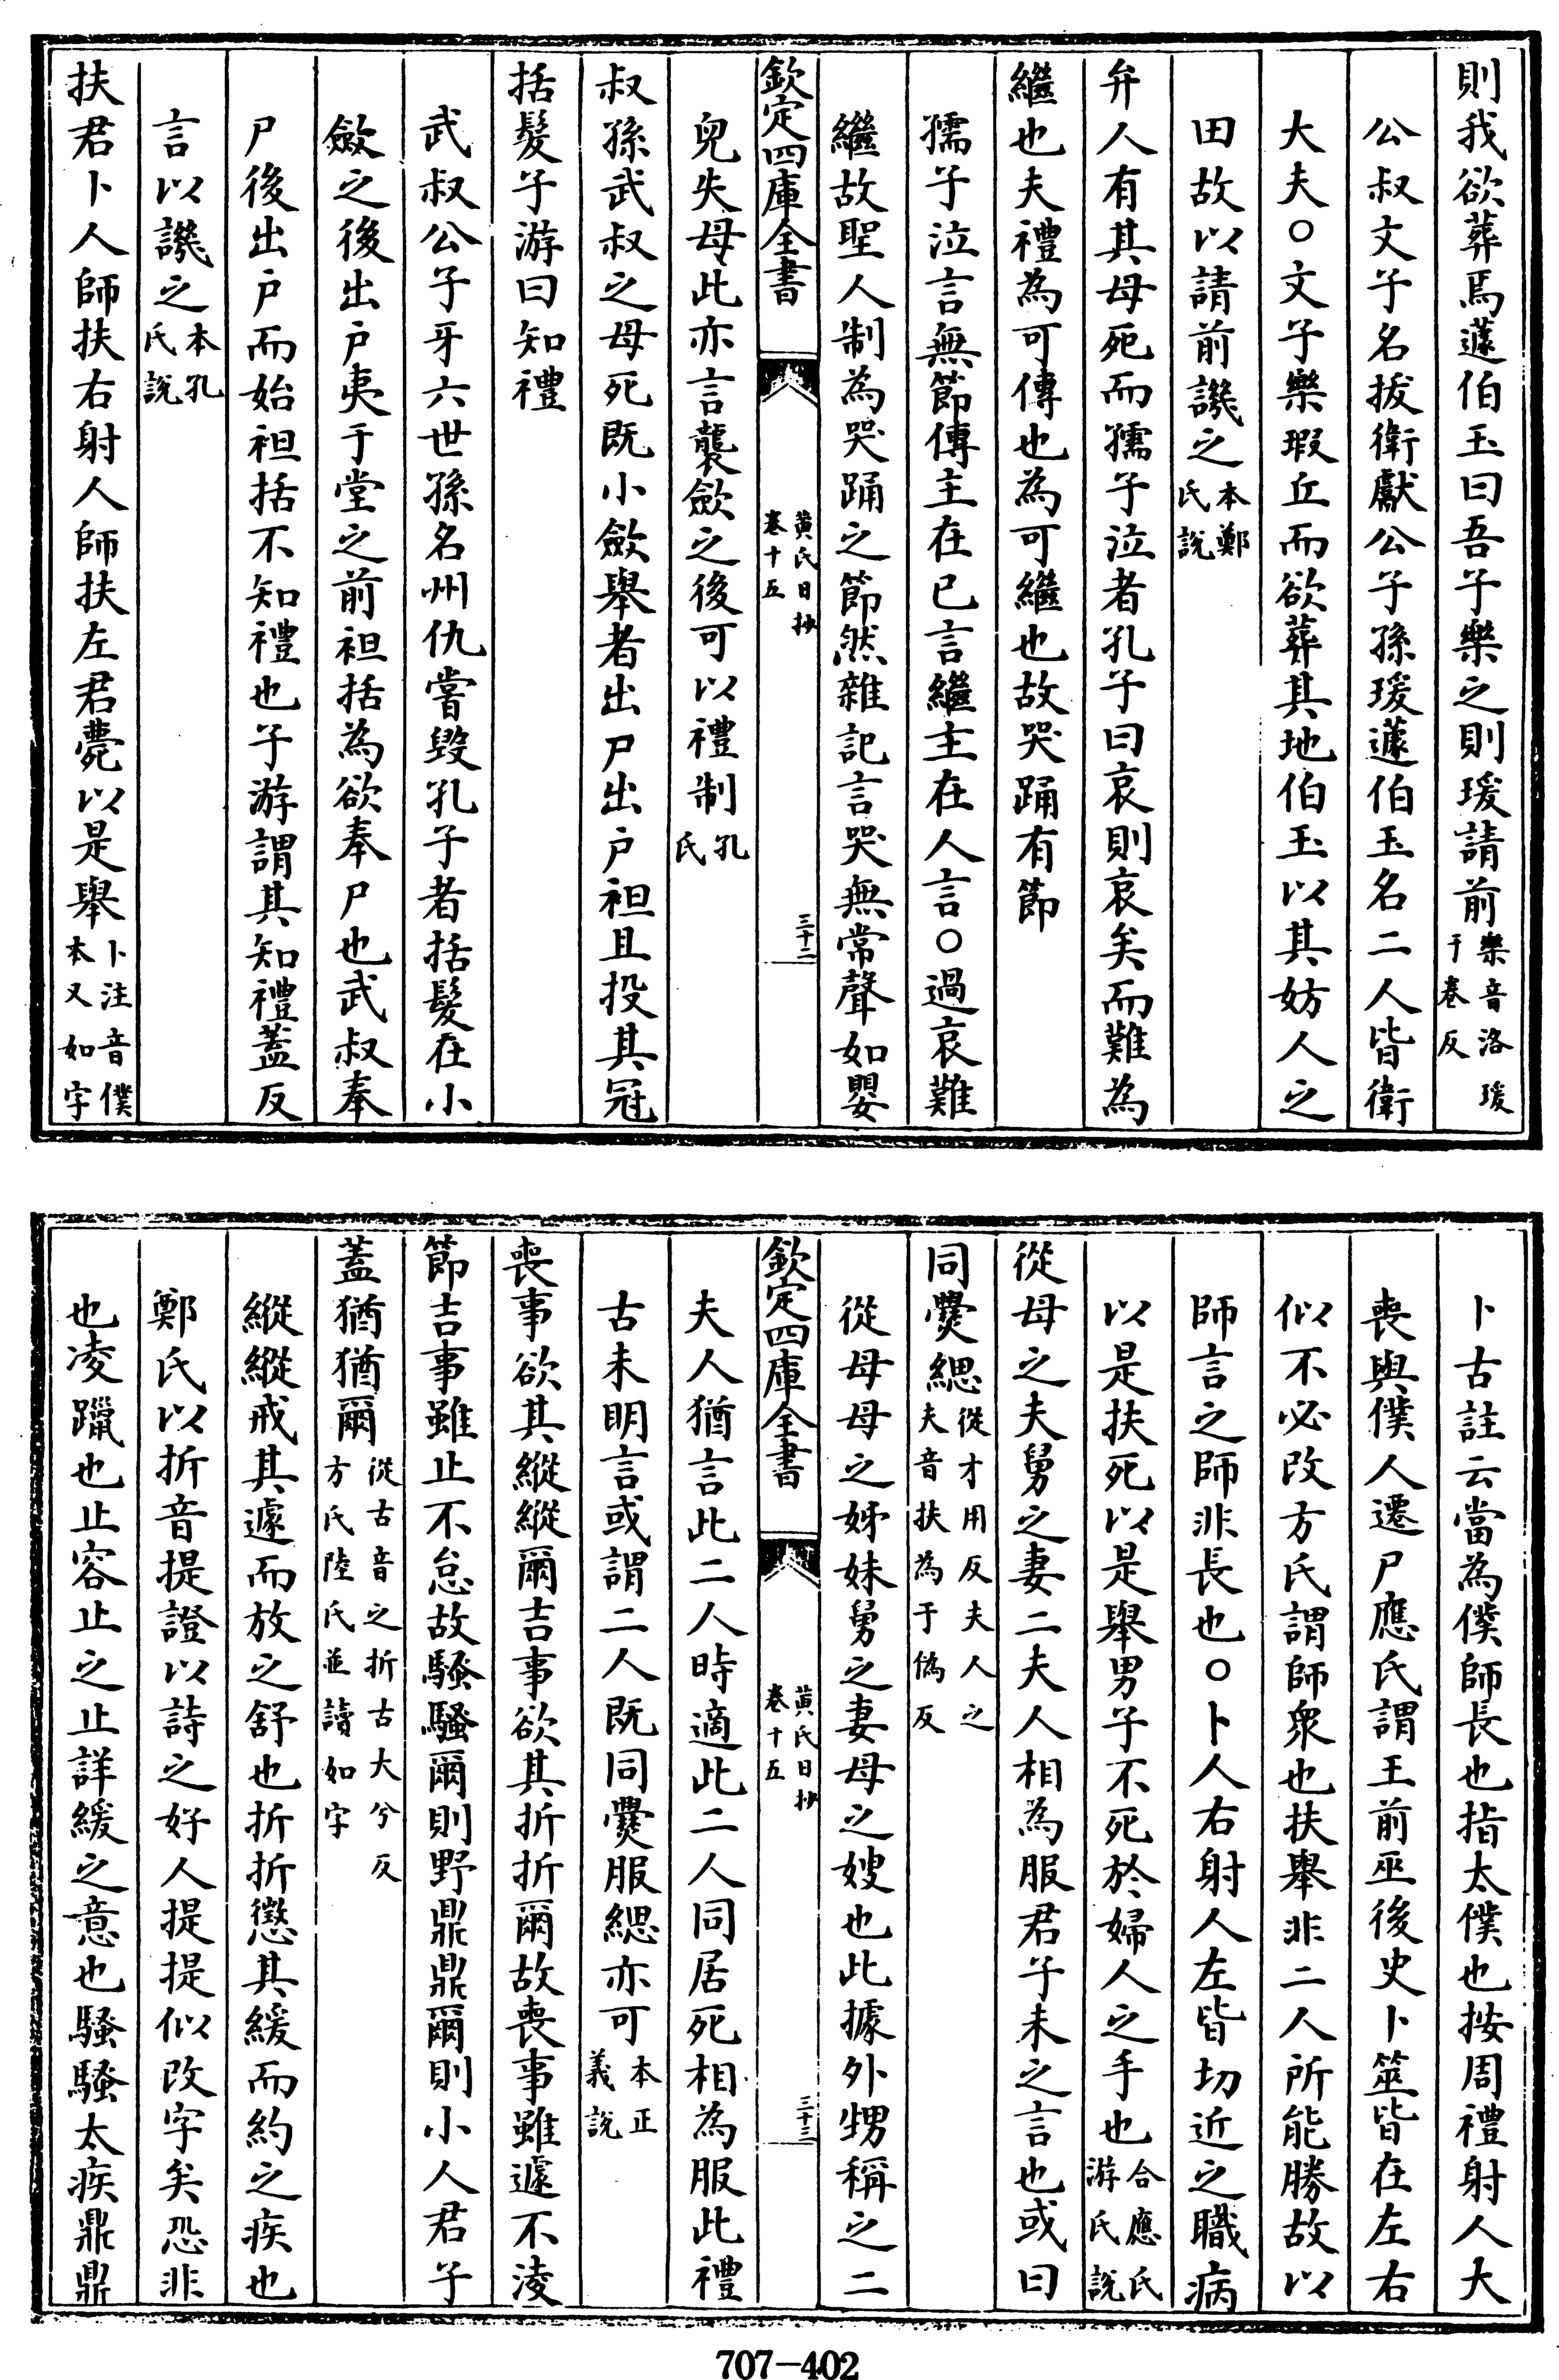 則我欲葬焉蘧伯玉曰吾子樂之則瑗請前樂音洛瑗于卷反
公叔文子名拔衛獻公子孫瑗蘧伯玉名二人皆衛
大夫○文子樂瑕丘而欲葬其地伯玉以其妨人之
田故以請前譏之本鄭氏說
弁人有其母死而孺子泣者孔子曰哀則哀矣而難為
繼也夫禮為可傳也為可繼也故哭踊有節
孺子泣言無節傳主在已言繼主在人言○過哀難
繼故聖人制為哭踊之節然雜記言哭無常聲如嬰
欽定四庫全書 黃氏日抄卷十五 三十二
兒失母此亦言襲斂之後可以禮制孔氏
叔孫武叔之母死既小斂舉者出尸出户袒且投其冠
括髮子游曰知禮
武叔公子牙六世孫名州仇嘗毀孔子者括髮在小
斂之後出户夷于堂之前袒括為欲奉尸也武叔奉
尸後出户而始袒括不知禮也子游謂其知禮蓋反
言以譏之本孔氏說
扶君卜人師扶右射人師扶左君薨以是舉卜注音僕本又如字
卜古註云當為僕師長也指太僕也按周禮射人大
喪與僕人遷尸應氏謂王前巫後史卜筮皆在左右
似不必改方氏謂師衆也扶舉非二人所能勝故以
師言之師非長也○卜人右射人左皆切近之職病
以是扶死以是舉男子不死於婦人之手也合應氏游氏說
從母之夫舅之妻二夫人相為服君子未之言也或曰
同爨緦從才用反夫人之夫音扶為于偽反
從母母之姊妹舅之妻母之嫂也此據外甥稱之二
欽定四庫全書 黃氏日抄卷十五 三十三
夫人猶言此二人時適此二人同居死相為服此禮
古未明言或謂二人既同爨服緦亦可本正義說
喪事欲其縱縱爾吉事欲其折折爾故喪事雖遽不淩
節吉事雖止不怠故騷騷爾則野鼎鼎爾則小人君子
蓋猶猶爾從古音之折古大兮反方氏陸氏並讀如字
縱縱戒其遽而放之舒也折折懲其緩而約之疾也
鄭氏以折音提證以詩之好人提提似改字矣恐非
也凌躐也止容止之止詳緩之意也騷騷太疾鼎鼎
707-402